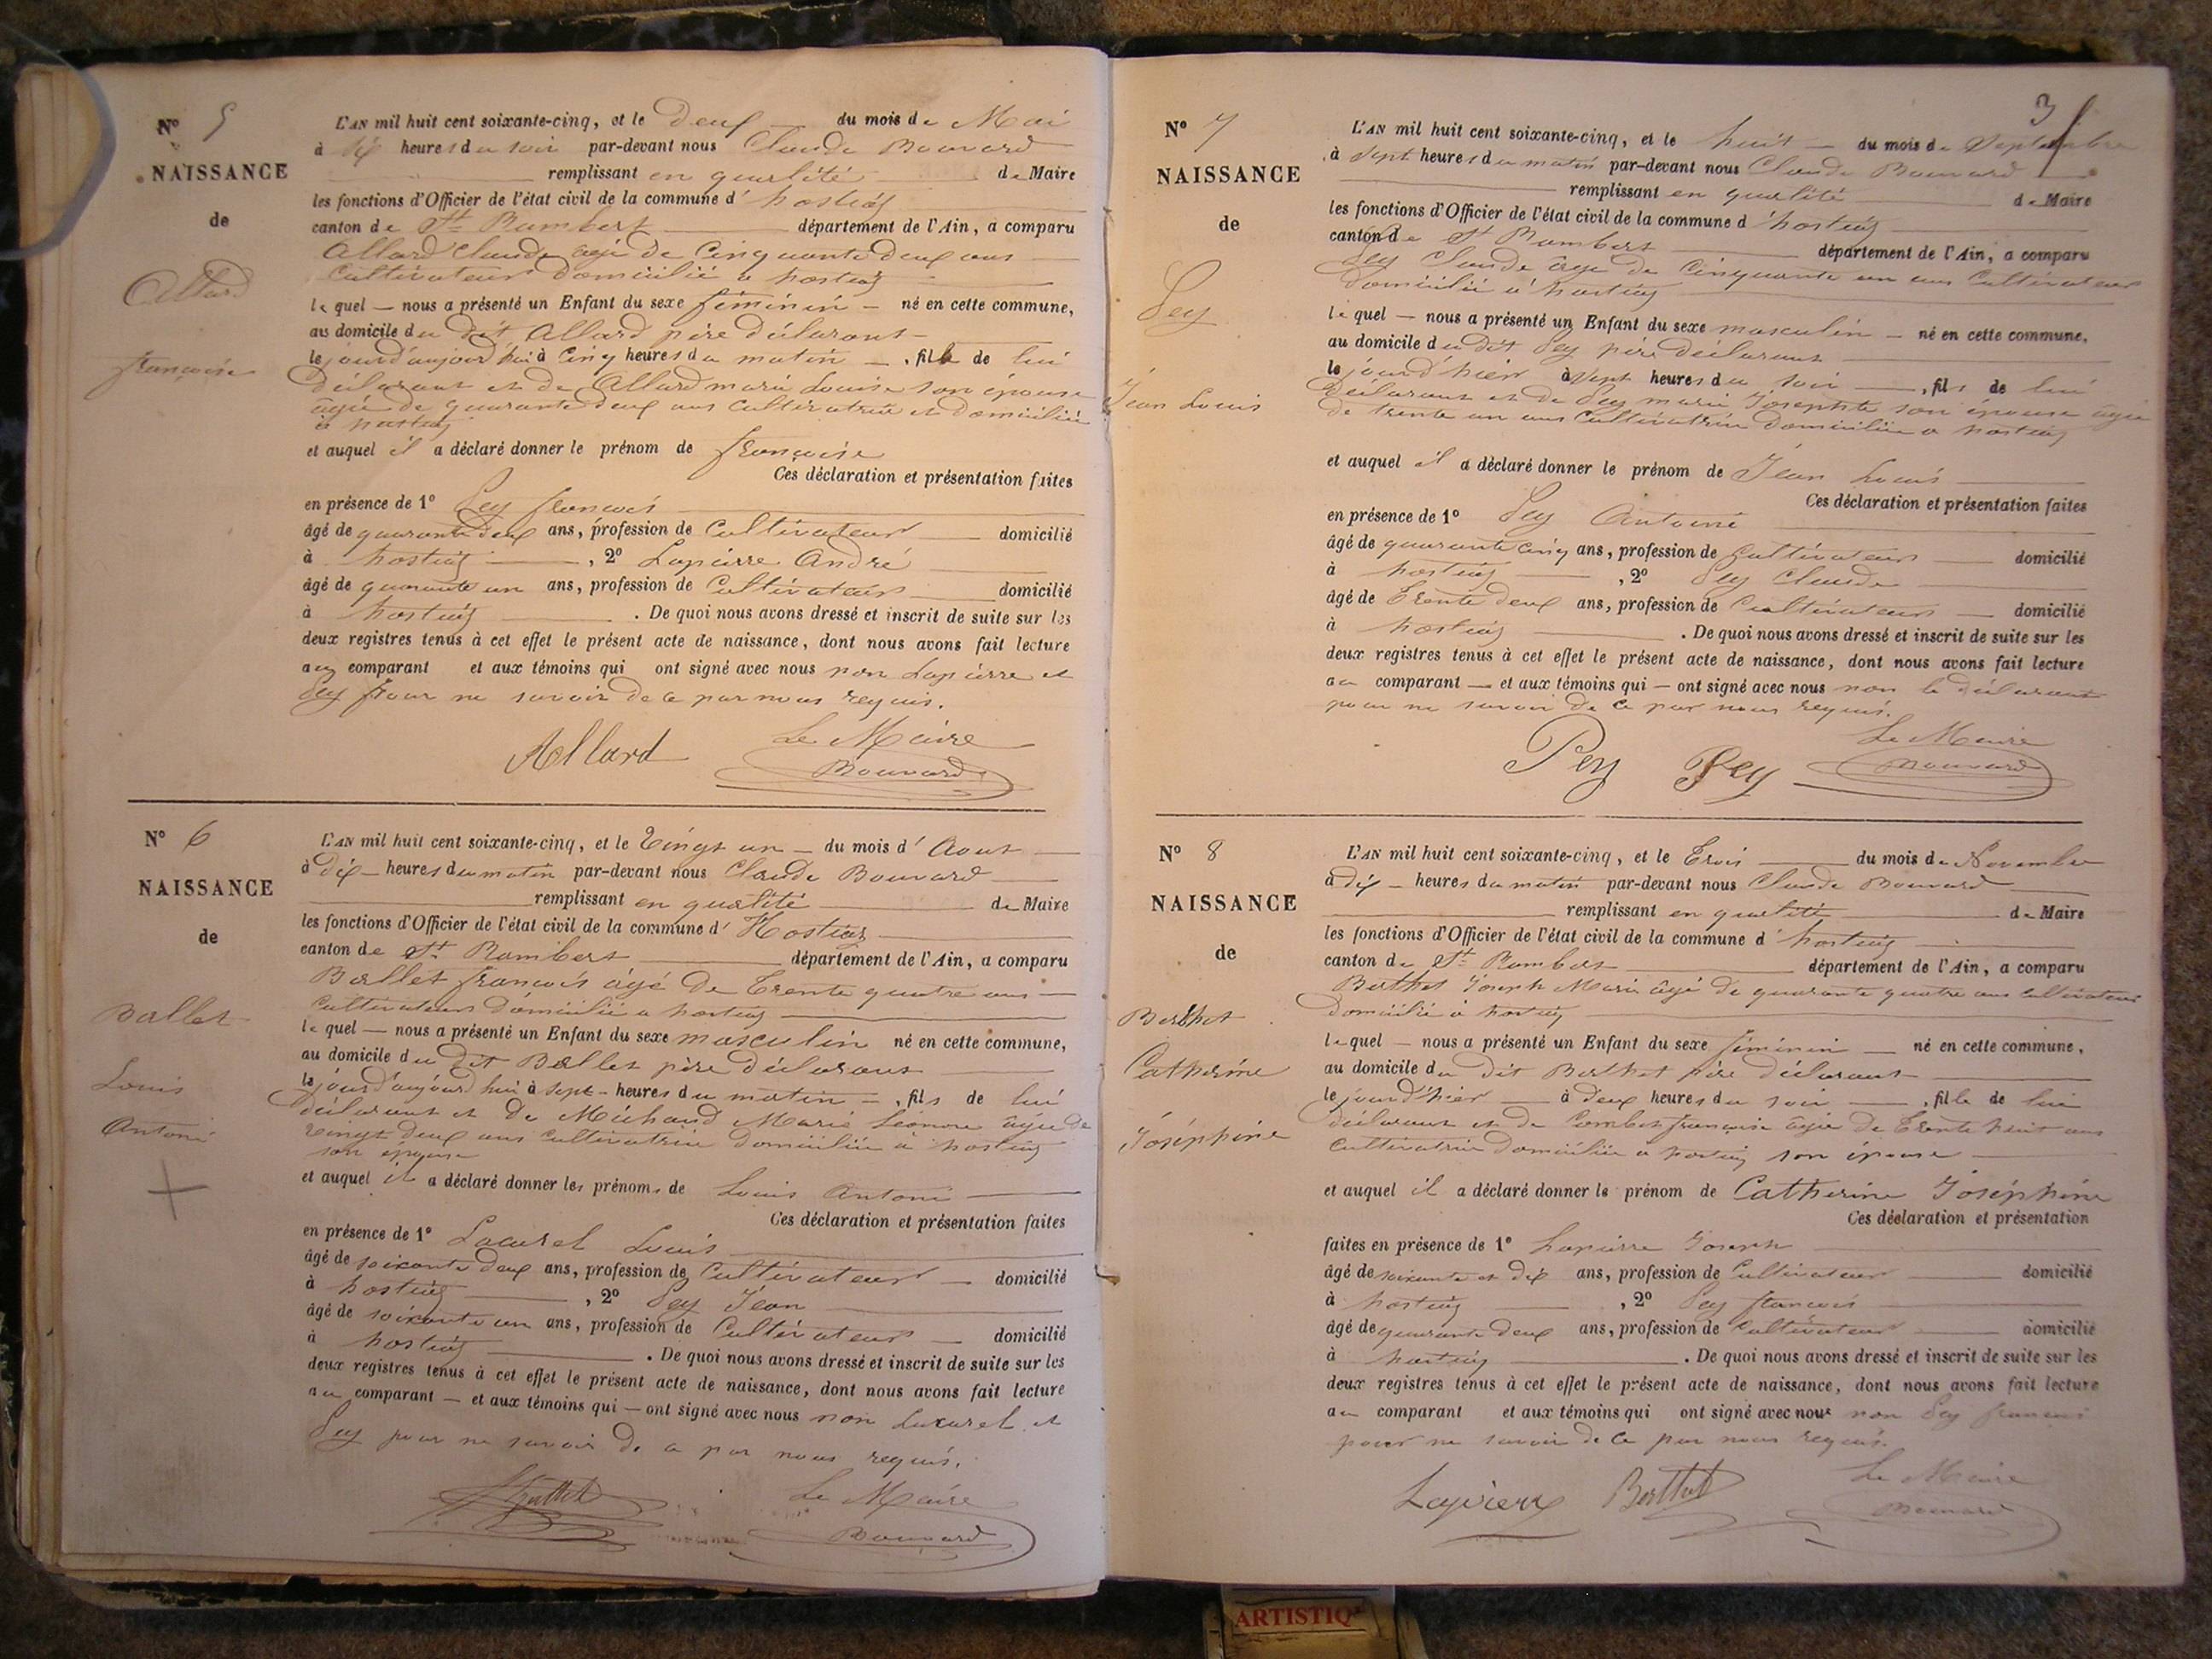 N° 5
NAISSANCE
de
Allard
françoise
L'AN mil huit cent soixante-cinq, et le Deux du mois de Mai
à six heures du soir par-devant nous Claude Bouvard
remplissant en qualité de Maire
les fonctions d'Officier de l'état civil de la commune d' hostiaz
canton de St Rambert département de l'Ain, a comparu
Allard Claude âgé de Cinquante deux ans
Cultivateur domicilié à hostiaz
le quel — nous a présenté un Enfant du sexe féminin — né en cette commune,
au domicile du dit Allard père déclarant
le jour d'aujourd'hui à Cinq heures du matin —, fille de lui
déclarant et de Allard marie Louise son épouse
âgée de quarante deux ans cultivatrice et domiciliée
à hostiaz
et auquel il a déclaré donner le prénom de françoise
Ces déclaration et présentation faites
en présence de 1° Pey françois
âgé de quarante deux ans, profession de Cultivateur domicilié
à hostiaz, 2° Lapierre André
âgé de quarante un ans, profession de Cultivateur domicilié
à hostiaz. De quoi nous avons dressé et inscrit de suite sur les
deux registres tenus à cet effet le présent acte de naissance, dont nous avons fait lecture
au comparant et aux témoins qui ont signé avec nous non Lapierre et
Pey pour ne savoir de ce par nous requis.
Allard Le Maire
Bouvard
N° 6
NAISSANCE
de
Ballet
Louis
Antoine
L'AN mil huit cent soixante-cinq, et le Vingt un — du mois d' Aout
à Dix — heures du matin par-devant nous Claude Bouvard
remplissant en qualité de Maire
les fonctions d'Officier de l'état civil de la commune d' Hostiaz
canton de St Rambert département de l'Ain, a comparu
Ballet françois âgé de Trente quatre ans
Cultivateur domicilié a hostiaz
le quel — nous a présenté un Enfant du sexe masculin né en cette commune,
au domicile du dit Ballet père déclarant
le jour d'aujourd'hui à sept heures du matin —, fils de lui
déclarant et de Michaud Marie Léonore âgée de
vingt deux ans cultivatrice domiciliée à hostiaz
son épouse
et auquel il a déclaré donner les prénoms de Louis Antoine
Ces déclaration et présentation faites
en présence de 1° Louis
âgé de soixante deux ans, profession de Cultivateur — domicilié
à hostiaz, 2° Pey Jean
âgé de soixante un ans, profession de Cultivateur — domicilié
à hostiaz. De quoi nous avons dressé et inscrit de suite sur les
deux registres tenus à cet effet le présent acte de naissance, dont nous avons fait lecture
au comparant — et aux témoins qui — ont signé avec nous non et
Pey pour ne savoir de ce par nous requis.
Le Maire
Bouvard
3
N° 7
NAISSANCE
de
Pey
Jean Louis
L'AN mil huit cent soixante-cinq, et le huit — du mois de Septembre
à sept heures du matin par-devant nous Claude Bouvard
remplissant en qualité de Maire
les fonctions d'Officier de l'état civil de la commune d'hostiaz
canton de St Rambert département de l'Ain, a comparu
Pey Claude âgé de Cinquante un ans Cultivateur
domicilié à hostiaz
le quel — nous a présenté un Enfant du sexe masculin — né en cette commune,
au domicile du dit Pey père déclarant
le jour d'hier à sept heures du soir —, fils de lui
déclarant et de Pey marie Josephte son épouse âgée
de trente un ans Cultivatrice domiciliée a hostiaz
et auquel il a déclaré donner le prénom de Jean Louis
Ces déclaration et présentation faites
en présence de 1° Pey Antoine
âgé de quarante cinq ans, profession de Cultivateur domicilié
à hostiaz, 2° Pey Claude
âgé de Trente deux ans, profession de Cultivateur domicilié
à hostiaz. De quoi nous avons dressé et inscrit de suite sur les
deux registres tenus à cet effet le présent acte de naissance, dont nous avons fait lecture
au comparant — et aux témoins qui — ont signé avec nous non le déclarant
pour ne savoir de ce par nous requis.
Pey Pey Le Maire
Bouvard
N° 8
NAISSANCE
de
Berthet
Catherine
Joséphine
L'AN mil huit cent soixante-cinq, et le Trois du mois de Novembre
à dix — heures du matin par-devant nous Claude Bouvard
remplissant en qualité de Maire
les fonctions d'Officier de l'état civil de la commune d'hostiaz
canton de St Rambert département de l'Ain, a comparu
Berthet Joseph Marie âgé de quarante quatre ans cultivateur
domicilié à hostiaz
le quel — nous a présenté un Enfant du sexe féminin — né en cette commune,
au domicile du dit Berthet père déclarant
le jour d'hier — à deux heures du soir —, fille de lui
déclarant et de Combet françoise âgée de Trente huit ans
cultivatrice domiciliée a hostiaz son épouse
et auquel il a déclaré donner le prénom de Catherine Joséphine
Ces déclaration et présentation
faites en présence de 1° Lapierre Joseph
âgé de soixante et dix ans, profession de Cultivateur domicilié
à hostiaz, 2° Pey francois
âgé de quarante deux ans, profession de Cultivateur domicilié
à hostiaz. De quoi nous avons dressé et inscrit de suite sur les
deux registres tenus à cet effet le présent acte de naissance, dont nous avons fait lecture
au comparant et aux témoins qui ont signé avec nous non Pey francois
pour ne savoir de ce par nous requis.
Lapierre Berthet Le Maire
Bouvard
ARTISTIQ